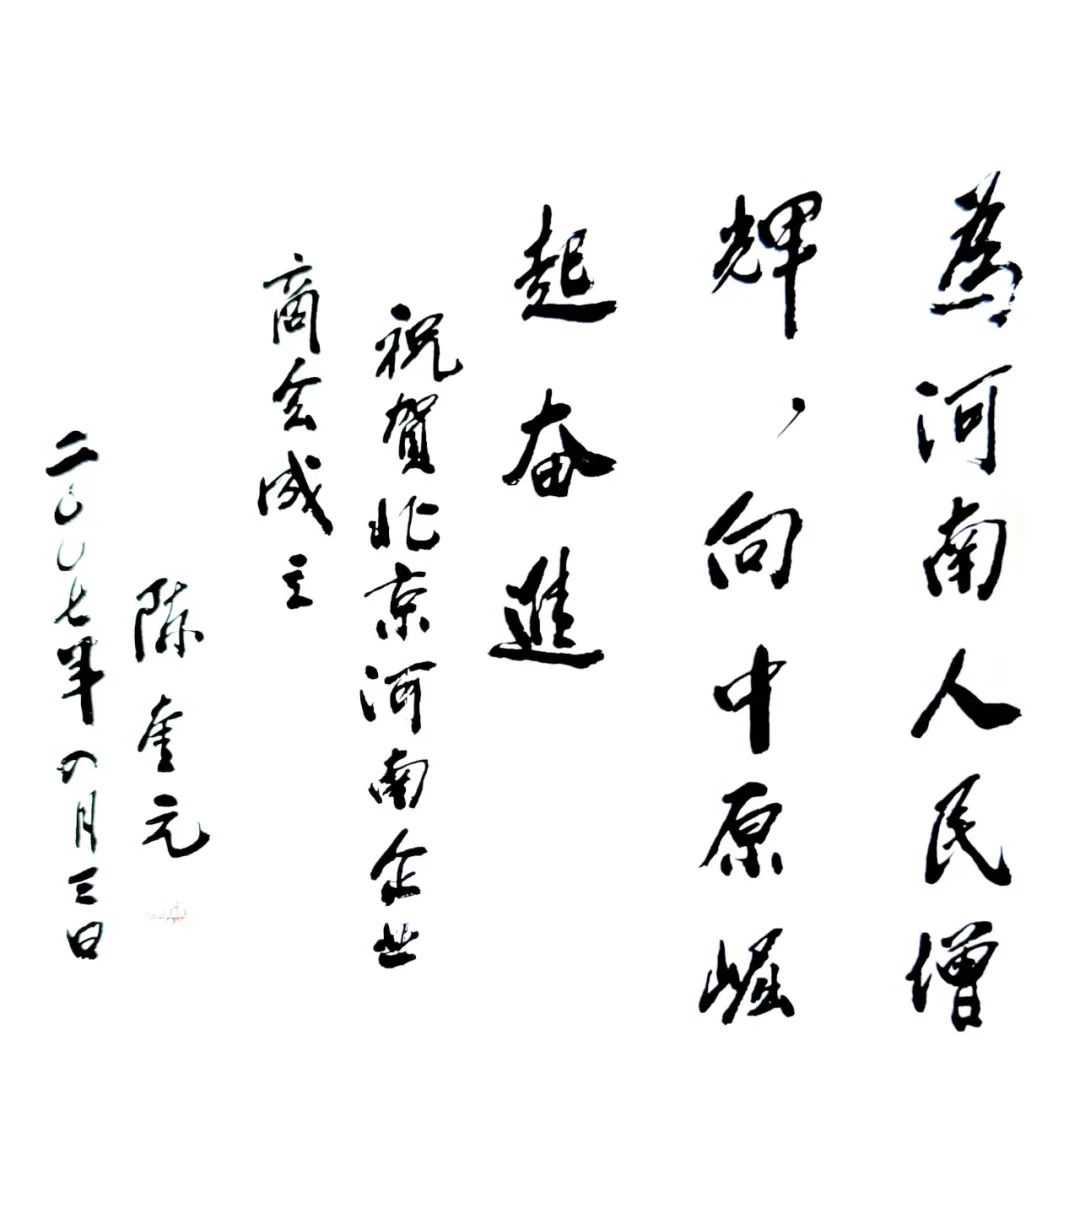 為河南人民增
輝，向中原崛
起奋進
祝賀北京河南企业
商会成立
陈奎元
二〇〇七年四月三日